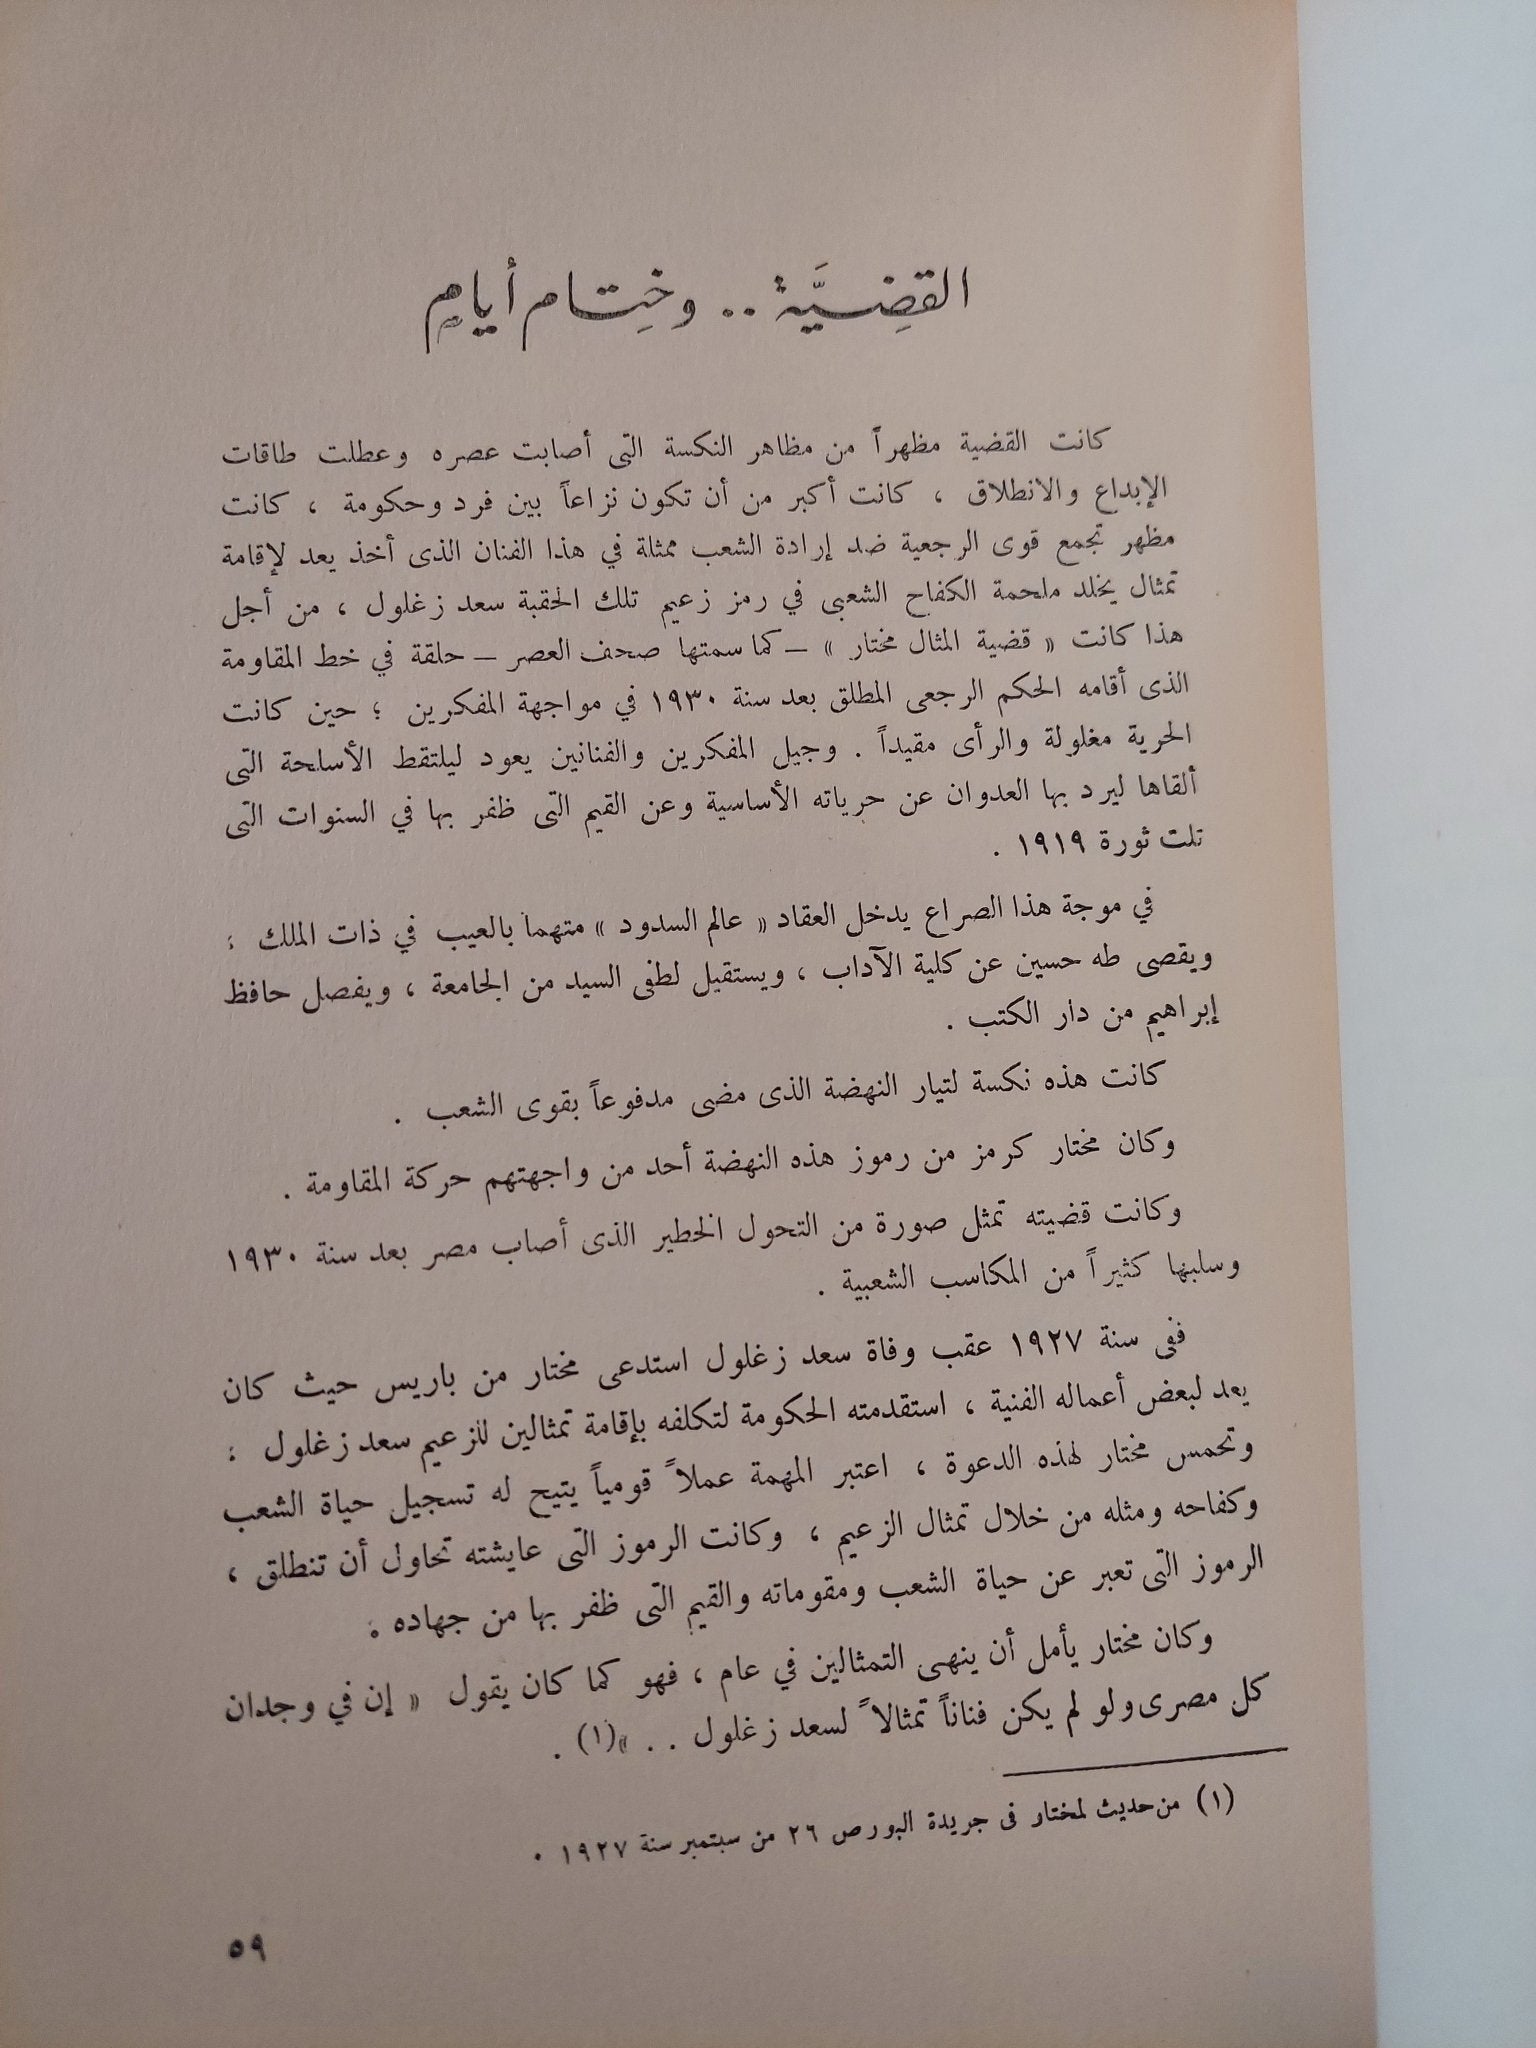 القضِيَّة .. وخِتام أيامٍ
كانت القضية مظهراً من مظاهر النكسة التى أصابت عصره وعطلت طاقات
الإبداع والانطلاق ، كانت أكبر من أن تكون نزاعاً بين فرد وحكومة ، كانت
مظهر تجمع قوى الرجعية ضد إرادة الشعب ممثلة في هذا الفنان الذى أخذ يعد لإقامة
تمثال يخلد ملحمة الكفاح الشعبى في رمز زعيم تلك الحقبة سعد زغلول ، من أجل
هذا كانت « قضية المثال مختار » – كما سمتها صحف العصر – حلقة في خط المقاومة
الذى أقامه الحكم الرجعى المطلق بعد سنة ١٩٣٠ في مواجهة المفكرين ؛ حين كانت
الحرية مغلولة والرأى مقيداً . وجيل المفكرين والفنانين يعود ليلتقط الأسلحة التى
ألقاها ليرد بها العدوان عن حرياته الأساسية وعن القيم التى ظفر بها في السنوات التى
تلت ثورة ١٩١٩ .
في موجة هذا الصراع يدخل العقاد « عالم السدود » متهما بالعيب في ذات الملك ؛
ويقصى طه حسين عن كلية الآداب ، ويستقيل لطفى السيد من الجامعة ، ويفصل حافظ
إبراهيم من دار الكتب .
كانت هذه نكسة لتيار النهضة الذى مضى مدفوعاً بقوى الشعب .
وكان مختار كرمز من رموز هذه النهضة أحد من واجهتهم حركة المقاومة .
وكانت قضيته تمثل صورة من التحول الخطير الذى أصاب مصر بعد سنة ١٩٣٠
وسلبها كثيراً من المكاسب الشعبية .
ففى سنة ١٩٢٧ عقب وفاة سعد زغلول استدعى مختار من باريس حيث كان
يعد لبعض أعماله الفنية ، استقدمته الحكومة لتكلفه بإقامة تمثالين للزعيم سعد زغلول ؛
وتحمس مختار لهذه الدعوة ، اعتبر المهمة عملاً قومياً يتيح له تسجيل حياة الشعب
وكفاحه ومثله من خلال تمثال الزعيم ، وكانت الرموز التى عايشته تحاول أن تنطلق ،
الرموز التى تعبر عن حياة الشعب ومقوماته والقيم التى ظفر بها من جهاده .
وكان مختار يأمل أن ينهى التمثالين في عام ، فهو كما كان يقول « إن في وجدان
كل مصرى ولو لم يكن فناناً تمثالاً لسعد زغلول . . »(١) .
(١) من حديث لمختار فى جريدة البورص ٢٦ من سبتمبر سنة ١٩٢٧ .
٥٩